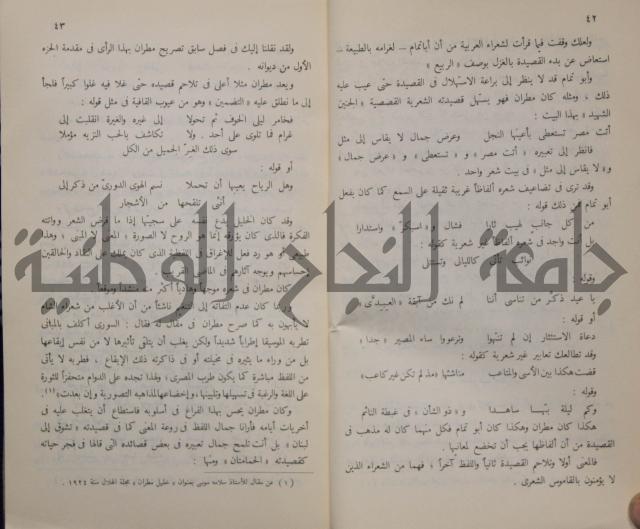 ٤٢
ولعلك وقفت فيما قرأت لشعراء العربية من أن أباتمام – لغرامه بالطبيعة –
استعاض عن بدء القصيدة بالغزل بوصف « الربيع »
وأبو تمام قد لا ينظر إلى براعة الاستهلال فى القصيدة حتى عيب عليه
ذلك ، ومثله كان مطران فهو يستهل قصيدته الشعرية القصصية « الجنين
الشهيد » بهذا البيت :
أتت مصر تستعطى بأعينها النجل وعرض جمال لا يقاس إلى مثل
فانظر إلى تعبيره « أتت مصر » و « تستعطى » و « عرض جمال »
و « لا يقاس إلى مثل » فى بيت شعر واحد .
وقد ترى فى تضاعيف شعره ألفاظاً غريبة ثقيلة على السمع كما كان يفعل
أبو تمام فمن ذلك قوله :
من كل جانب لهيب ثارا فشال و « اسبكر » واستدارا
بل أنت واجد فى شعره ألفاظاً غير شعرية كقوله :
نوائب تأتى كالليالى وتستتلى
وقوله :
يا عيد ذكّر من تناسى أننا لم نك من آبقة « العبيدى »
أو قوله :
دعاة الاستئثار إن لم تنتهوا وترعووا ساء المصير « جدا »
وقد تطالعك تعابير غير شعرية كقوله :
قضت هكذا بين الأسى والمتاعب مناشئها « مذ لم تكن غير كاعب »
وقوله :
وكم ليلة بتّها ساهداً و « ذو الشأن » فى غبطة النائم
هكذا كان مطران وهكذا كان أبو تمام فكل منهما كان له مذهب فى
القصيدة من أن ألفاظها يجب أن تخضع لمعانيها .
فالمعنى أولا وتلاحم القصيدة ثانياً واللفظ آخراً ، فهما من الشعراء الذين
لا يؤمنون بالقاموس الشعرى .
٤٣
ولقد نقلنا إليك فى فصل سابق تصريح مطران بهذا الرأى فى مقدمة الجزء
الأول من ديوانه .
ويعد مطران مثلا أعلى فى تلاحم قصيده حتى غلا فيه غلوا كبيراً فلجأ
إلى ما نطلق عليه « التضمين » وهو من عيوب القافية فى مثل قوله :
فخامر ليلى الخوف ثم تحولا إلى غيره والغيرة انقلبت إلى
غرام فما تلوى على أحد . ولا تكاشف بالحب النزيه مؤملا
سوى ذلك الغرّ الجميل من الكل
أو قوله :
وهل الرياح يعيبها أن تحملا نسم الهوى الدورىّ من ذكر إلى
أنثى تلقحها من الأشجار
وقد كان الخليل يدع نفسه على سجيتها إذا ما قرض الشعر وواتته
الفكرة فالذى كان يؤرقه إنما هو الروح لا الصورة ؛ المعنى لا المبنى ، وهذا
طبيعى فهو رد فعل للإغراق فى اللفظية الذى كان يملك على النقاد والخالقين
إحساسهم ويوجه آثارهم فى الماضى
كان مطران فى شعره موجها وهاديا أكثر منه منشدا وموقعا
وربما كان عدم التفاته إلى النغم ناشئاً من أن الأغلب من شعرائه القدامى
لا يأبهون به كما صرح مطران فى مقال له فقال : السورى أكلف بالمبانى
تطربه الموسيقا إطراباً شديداً ولكن يغلب أن يتلقى تأثيرها لا من نفس إيقاعها
بل من وراء ما يثيره فى مخيلته أو فى ذاكرته ذلك الإيقاع ، فطربه لا يأتى
من اللفظ مباشرة كما يكون طرب المصرى ؛ ولهذا تجده على الدوام متحفزاً للثورة
على اللغة والرغبة فى تسهيلها وتليينها ، وإخضاعها لمذاهبه التصورية وإن بعدت »(١) .
وكان مطران يحس بهذا الفراغ فى أسلوبه فاستطاع أن يتغلب عليه فى
أخريات أيامه فأرانا جمال اللفظ فى روعة المعنى كما فى قصيدته « تشوق إلى
لبنان » بل أنت تلمح جمال تعبيره فى بعض قصائده التى قالها فى فجر حياته
كقصيدته « الحمامتان » ومنها :
( ١ ) عن مقال للأستاذ سلامه موسى بعنوان « خليل مطران » مجلة الهلال سنة ١٩٢٤ .
جامعة النجاح الوطنية